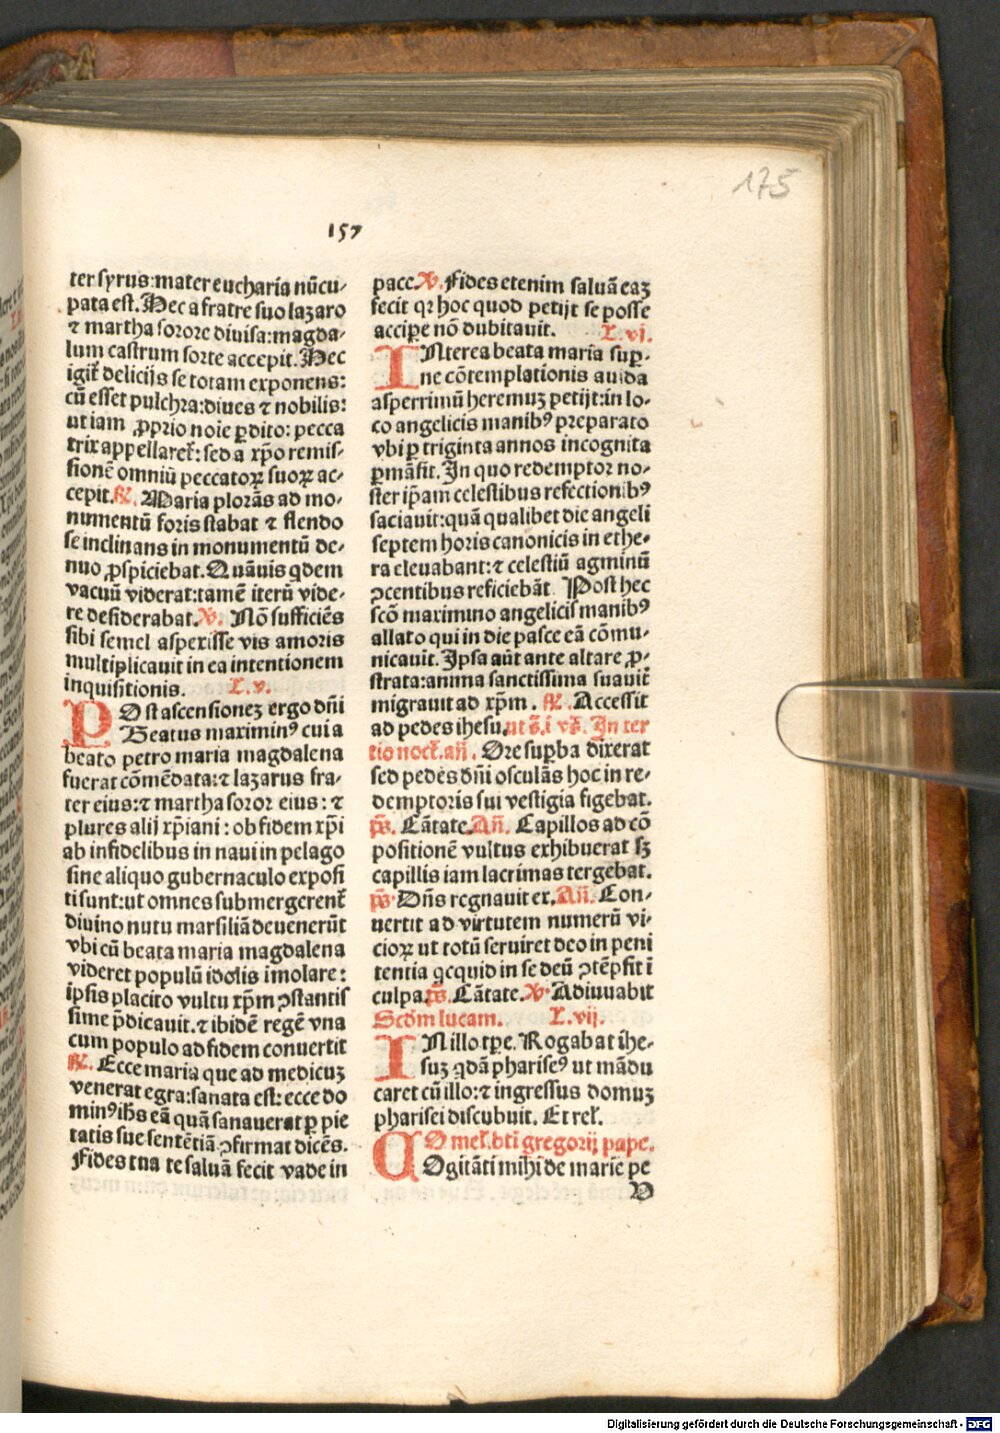 175
157
ter syrus: mater eucharia nūcu-
pata est. Hec a fratre suo lazaro
⁊ martha sorore diuisa: magda-
lum castrum sorte accepit. Hec
igit̄ delicijs se totam exponens:
cū esset pulchra: diues ⁊ nobilis:
ut iam ꝓprio noīe ꝑdito: pecca
trix appellaret̄: sed a xp̄o remis-
sionē omniū peccatoꝝ suoꝝ ac-
cepit. ℟. Maria plorās ad mo-
numentū foris stabat ⁊ flendo
se inclinans in monumentū de-
nuo ꝓspiciebat. Quāuis qdem
vacuū viderat: tamē iterū vide-
re desiderabat. ℣. Nō sufficiēs
sibi semel aspexisse vis amoris
multiplicauit in ea intentionem
inquisitionis. L. v.
POst ascensionez ergo dn̄i
Beatus maximinꝰ cui a
beato petro maria magdalena
fuerat cōmēdata: ⁊ lazarus fra-
ter eius: ⁊ martha soror eius: ⁊
plures alij xp̄iani: ob fidem xp̄i
ab infidelibus in naui in pelago
sine aliquo gubernaculo exposi
ti sunt: ut omnes submergerent̄
diuino nutu marsiliā deuenerūt
vbi cū beata maria magdalena
videret populū idolis īmolare:
ip̄sis placito vultu xp̄m ꝯstantis
sime p̄dicauit. ⁊ ibidē regē vna
cum populo ad fidem conuertit
℟. Ecce maria que ad medicuz
venerat egra: sanata est: ecce do
minꝰ ih̄s eā quā sanauerat ꝑ pie
tatis sue sentētiā ꝯfirmat dicēs.
Fides tua te saluā fecit vade in
pace. ℣. Fides etenim saluā eaz
fecit qꝛ hoc quod petijt se posse
accipe nō dubitauit. L. vj.
INterea beata maria suꝑ-
ne cōtemplationis auida
asperrimū heremuz petijt: in lo-
co angelicis manibꝰ preparato
vbi ꝑ triginta annos incognita
ꝑmāsit. In quo redemptor no-
ster ip̄am celestibus refectionibꝰ
saciauit: quā qualibet die angeli
septem horis canonicis in ethe-
ra eleuabant: ⁊ celestiū agminū
ꝯcentibus reficiebāt. Post hec
scō maximino angelicis manibꝰ
allato qui in die pasce eā cōmu-
nicauit. Ipsa aūt ante altare ꝓ-
strata: anima sanctissima suauit̄
migrauit ad xp̄m. ℟. Accessit
ad pedes ihesu. ut s̄. i vs̄. In ter
tio noct̄. an̄. Ore suꝑba dixerat
sed pedes dn̄i osculās hoc in re-
demptoris sui vestigia figebat.
ps̄. Cātate. An̄. Capillos ad cō
positionē vultus exhibuerat sꝫ
capillis iam lacrimas tergebat.
ps̄. Dn̄s regnauit ex. An̄. Con-
uertit ad virtutem numerū vi-
cioꝝ ut totū seruiret deo in peni
tentia qcquid in se deū ꝯtēpsit ī
culpa. ps̄. Cātate. ℣. Adiuuabit
Scdm lucam. L. vij.
IN illo tꝑe. Rogabat ihe-
suz qdā phariseꝰ ut mādu
caret cū illo: ⁊ ingressus domuz
pharisei discubuit. Et rel̄.
Omel̄. bt̄i gregorij pape.
COgitāti mihi de marie pe
v
Digitalisierung gefördert durch die Deutsche Forschungsgemeinschaft - DFG